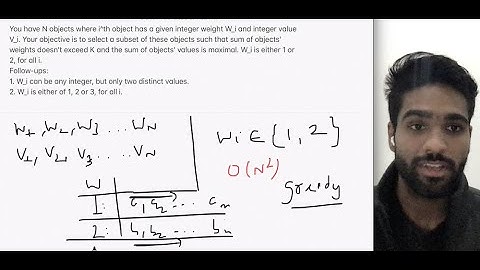 You have N objects where i^th object has a given integer weight W_i and integer value
V_i. Your objective is to select a subset of these objects such that sum of objects'
weights doesn't exceed K and the sum of objects' values is maximal. W_i is either 1 or
2, for all i.
Follow-ups:
1. W_i can be any integer, but only two distinct values.
2. W_i is either of 1, 2 or 3, for all i.
W1, W2, W3 ... WN
V1, V2, V3 ... VN
Wi ∈ {1, 2}
O(N²)
Greedy
W
1: a1, a2 ... an
2: b1, b2 ... bn